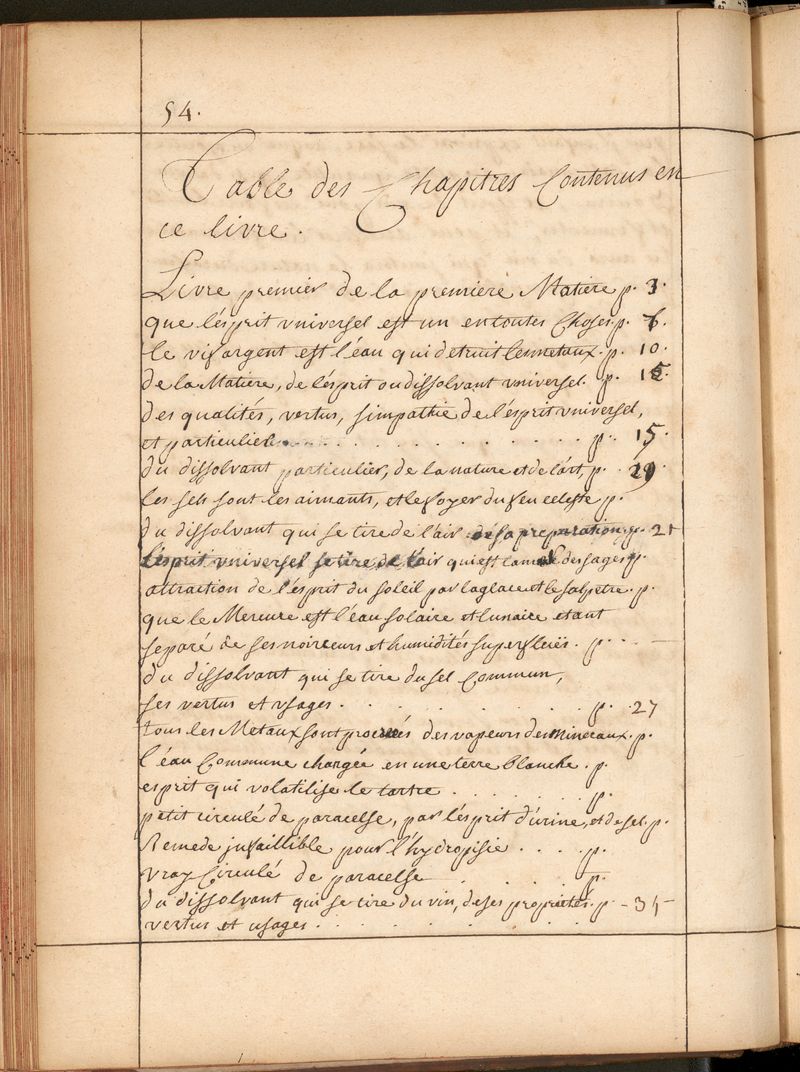 54.
Table des Chapitres Contenus en
ce livre.
Livre premier de la premiere Matiere p. 3.
que lésprit vniversel est un entoutes Choses. p. 6.
le vif argent est l'éau qui detruit les metaux. p. 10.
de la Matiere, de lésprit ou dissolvant vniversel. p.
des qualités, vertus, simpathie de l'ésprit vniversel,
et particulier . . . . . . . . . . p. 15.
du dissolvant particulier, de la nature et de l'art, p. 29.
les sels sont les aimants, et le foyer du feu celeste p.
du dissolvant qui se tire de l'air de sa preparation. p. 21
l'ésprit vniversel se tire de l'air qui est l'ame des sages p.
attraction de l'ésprit du soleil par la glace et le salpetre. p.
que le Mercure est l'éau solaire et lunaire etant
separé de ses noirceurs et humidités superflües. p. . . . —
du dissolvant qui se tire du sel Commun,
ses vertus et vsages . . . . . . . . . p. 27
tous les Metaux sont procréés des vapeurs des Mineraux. p.
l'éau Commune changée en une terre blanche. p.
esprit qui volatilise le tartre . . . . . . . p.
petit circulé de paracelse, par lésprit d'urine, et de sel. p.
Remede jnfaillible pour l'hydropisie . . . . p.
vray Circulé de paracelse . . . . . p.
du dissolvant qui se tire du vin, de ses proprietés. p - 31 -
vertus et usages . . . . . . . . .